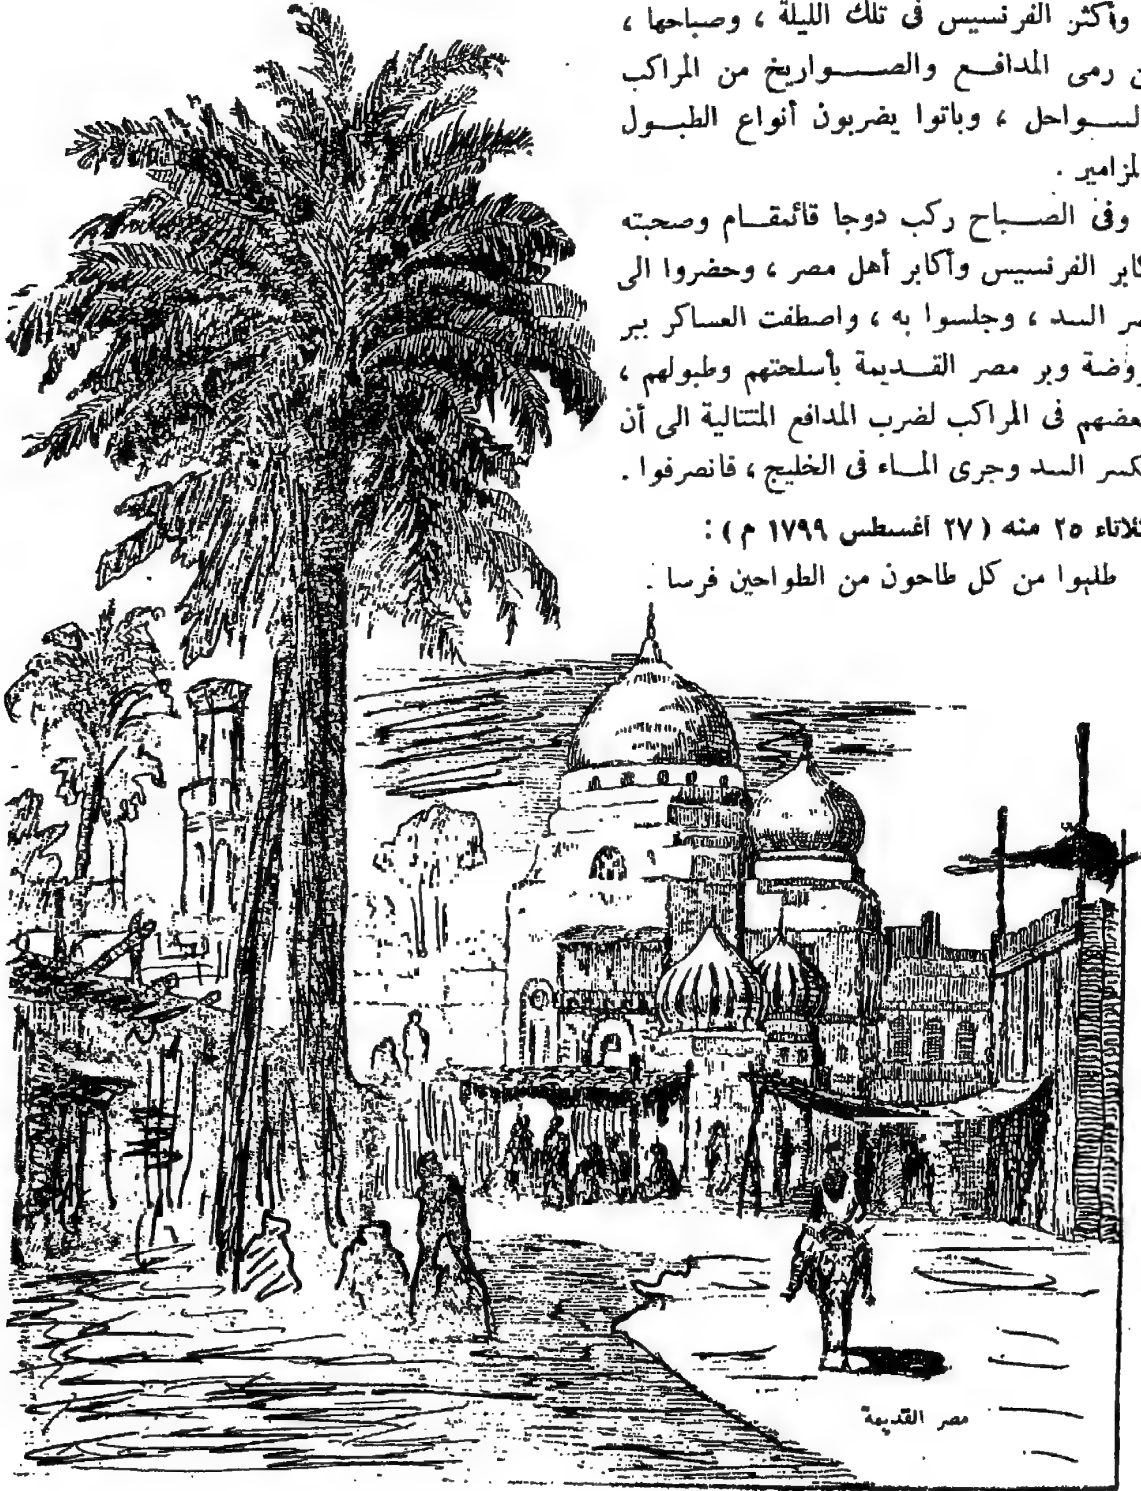 وأكثر الفرنسيس فى تلك الليلة ، وصباحها ،
رمى المدافـــع والصـــــواريخ من المراكب
ـــواحل ، وباتوا يضربون أنواع الطبـــول
لمزامير .
وفى الصـــباح ركب دوجا قائمقـــام وصحبته
ابر الفرنسيس وأكابر أهل مصر ، وحضروا الى
ـر السد ، وجلسوا به ، واصطفت العساكر ببر
روضة وبر مصر القـــديمة بأسلحتهم وطبولهم ،
ـعضهم فى المراكب لضرب المدافع المتتالية الى أن
كسر السد وجرى المـــاء فى الخليج ، فانصرفوا .
ـلاثاء ٢٥ منه ( ٢٧ أغسطس ١٧٩٩ م ) :
طلبوا من كل طاحون من الطواحين فرسا .
مصر القديمة